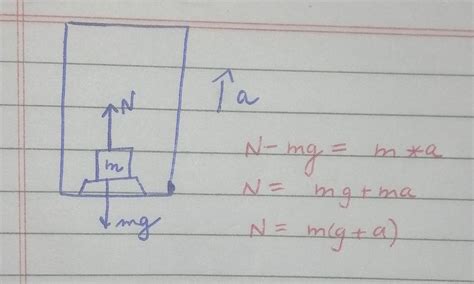 N
a
m
mg
N - mg = m * a
N = mg + ma
N = m(g + a)